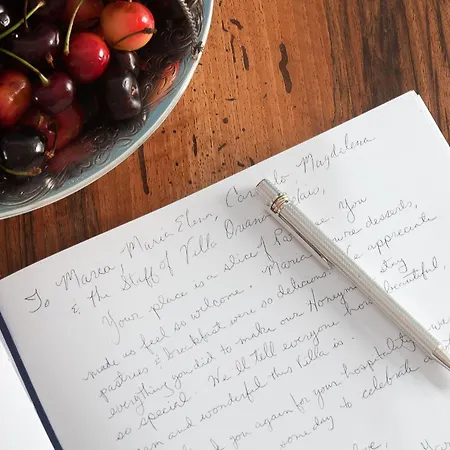 To Marea, Maria Elena, Carmelo Magdilena
& the Staff of Villa
Your place is a slice of You
made us feel so welcome. Maria desserts,
pastries & breakfast were so delicious. We appreciate
everything you did to make our Honeymoon stay
so special. We'll tell everyone how beautiful,
and wonderful this Villa is.
you again for your hospitality
some day to celebrate